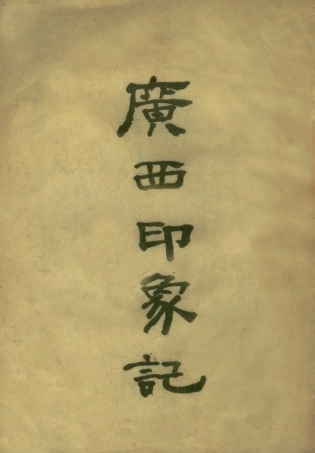 廣西印象記